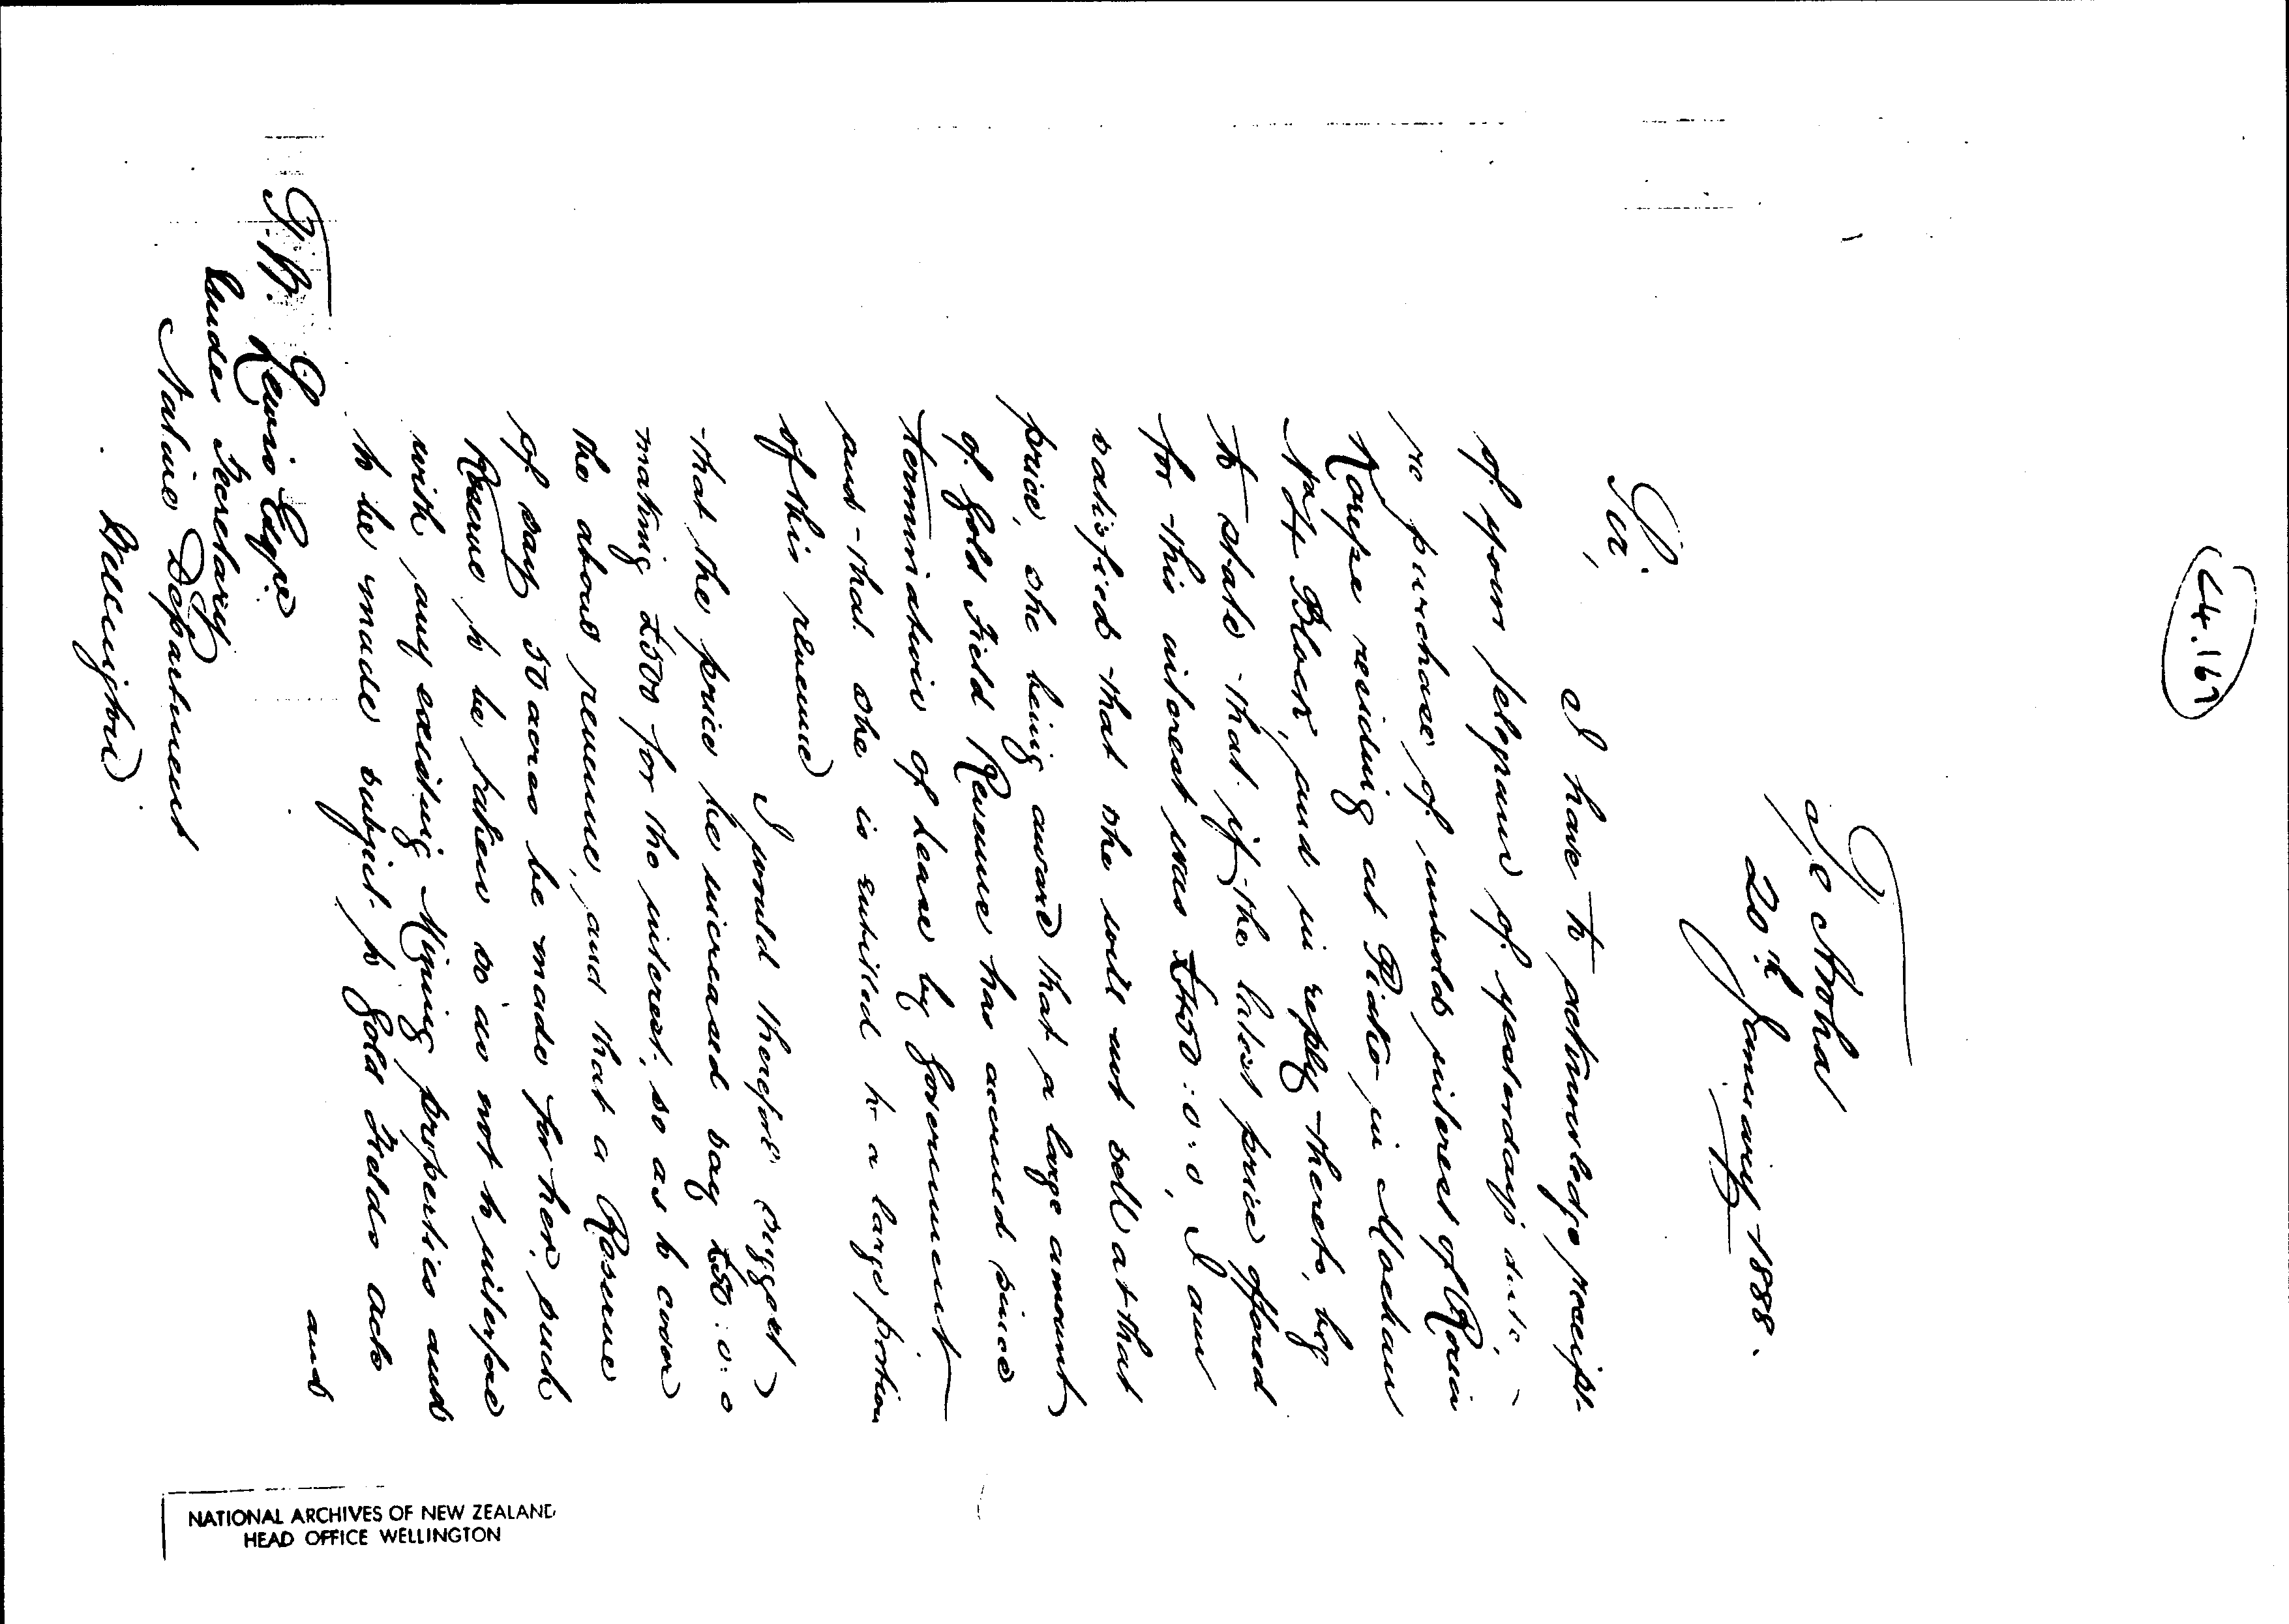 (C4.167)
Te Aroha
20th January 1888.
Sir,
I have to acknowledge receipt
of your telegram of yesterday's date,
re purchase of unsold interest of Rouia
Karepe residing at Piako in Moehau
No 4 Block, and in reply thereto, beg
to state that if the latest price offered
for this interest was £450:0:0, I am
satisfied that she will not sell at that
price, she being aware that a large amount
of Gold Field Revenue has accrued since
termination of lease by Government
and that she is entitled to a large portion
of this revenue
I would therefore suggest
that the price be increased say £50:0:0
making £500 for the interest, so as to cover
the above revenue, and that a Reserve
of say 50 acres be made for her, such
Reserve to be taken so as not to interfere
with any existing Mining properties and
to be made subject to Gold Fields acts
and
T.W. Lewis Esqre
Under Secretary
Native Department
Wellington
NATIONAL ARCHIVES OF NEW ZEALAND
HEAD OFFICE WELLINGTON